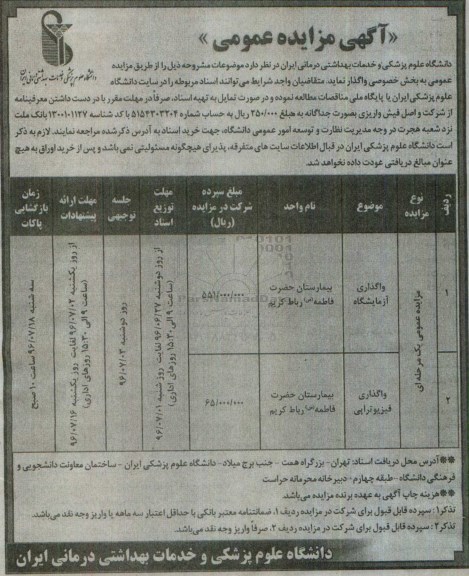 «آگهی مزایده عمومی»
دانشگاه علوم پزشکی و خدمات بهداشتی درمانی ایران در نظر دارد موضوعات مشروحه ذیل را از طریق مزایده
عمومی به بخش خصوصی واگذار نماید. متقاضیان واجد شرایط می‌توانند اسناد مربوطه را در سایت دانشگاه
علوم پزشکی ایران یا پایگاه ملی مناقصات مطالعه نموده و در صورت تمایل به تهیه اسناد، صرفاً در مهلت مقرر با در دست داشتن معرفینامه
از شرکت و اصل فیش واریزی بصورت جداگانه به مبلغ ۲۵۰/۰۰۰ ریال به حساب شماره ۵۱۵۴۳۰۳۲۰۴ با کد شناسه ۱۳۰۰۱۰۱۱۲۷ بانک ملت
نزد شعبه هجرت در وجه مدیریت نظارت و توسعه امور عمومی دانشگاه، جهت خرید اسناد به آدرس ذکر شده مراجعه نمایند. لازم به ذکر
است دانشگاه علوم پزشکی ایران در قبال اطلاعات سایت های متفرقه، پذیرای هیچگونه مسئولیتی نمی باشد و پس از خرید اوراق به هیچ
عنوان مبالغ دریافتی عودت داده نخواهد شد.
ردیف
نوع مزایده
موضوع
نام واحد
مبلغ سپرده شرکت در مزایده (ریال)
مهلت توزیع اسناد
جلسه توجیهی
مهلت ارائه پیشنهادات
زمان بازگشایی پاکات
۱
مزایده عمومی یک مرحله ای
واگذاری آزمایشگاه
بیمارستان حضرت فاطمه(س) رباط کریم
۵۵۱/۰۰۰/۰۰۰
از روز دوشنبه ۹۶/۰۶/۲۷ لغایت روز شنبه ۹۶/۰۷/۰۱
(ساعت ۹ الی ۱۵:۳۰ روزهای اداری)
روز دوشنبه ۹۶/۰۷/۰۳
از روز یکشنبه ۹۶/۰۷/۰۲ لغایت روز یکشنبه ۹۶/۰۷/۱۶
(ساعت ۹ الی ۱۵:۳۰ روزهای اداری)
سه شنبه ۹۶/۰۷/۱۸ ساعت ۱۰ صبح
۲
واگذاری فیزیوتراپی
بیمارستان حضرت فاطمه(س) رباط کریم
۶۵/۰۰۰/۰۰۰
** آدرس محل دریافت اسناد: تهران - بزرگراه همت - جنب برج میلاد- دانشگاه علوم پزشکی ایران - ساختمان معاونت دانشجویی و
فرهنگی دانشگاه - طبقه چهارم - دبیرخانه محرمانه حراست
** هزینه چاپ آگهی به عهده برنده مزایده می‌باشد.
تذکر۱: سپرده قابل قبول برای شرکت در مزایده ردیف ۱، ضمانتنامه معتبر بانکی با حداقل اعتبار سه ماهه یا واریز وجه نقد می‌باشد.
تذکر۲: سپرده قابل قبول برای شرکت در مزایده ردیف ۲، صرفاً واریز وجه نقد می‌باشد.
دانشگاه علوم پزشکی و خدمات بهداشتی درمانی ایران